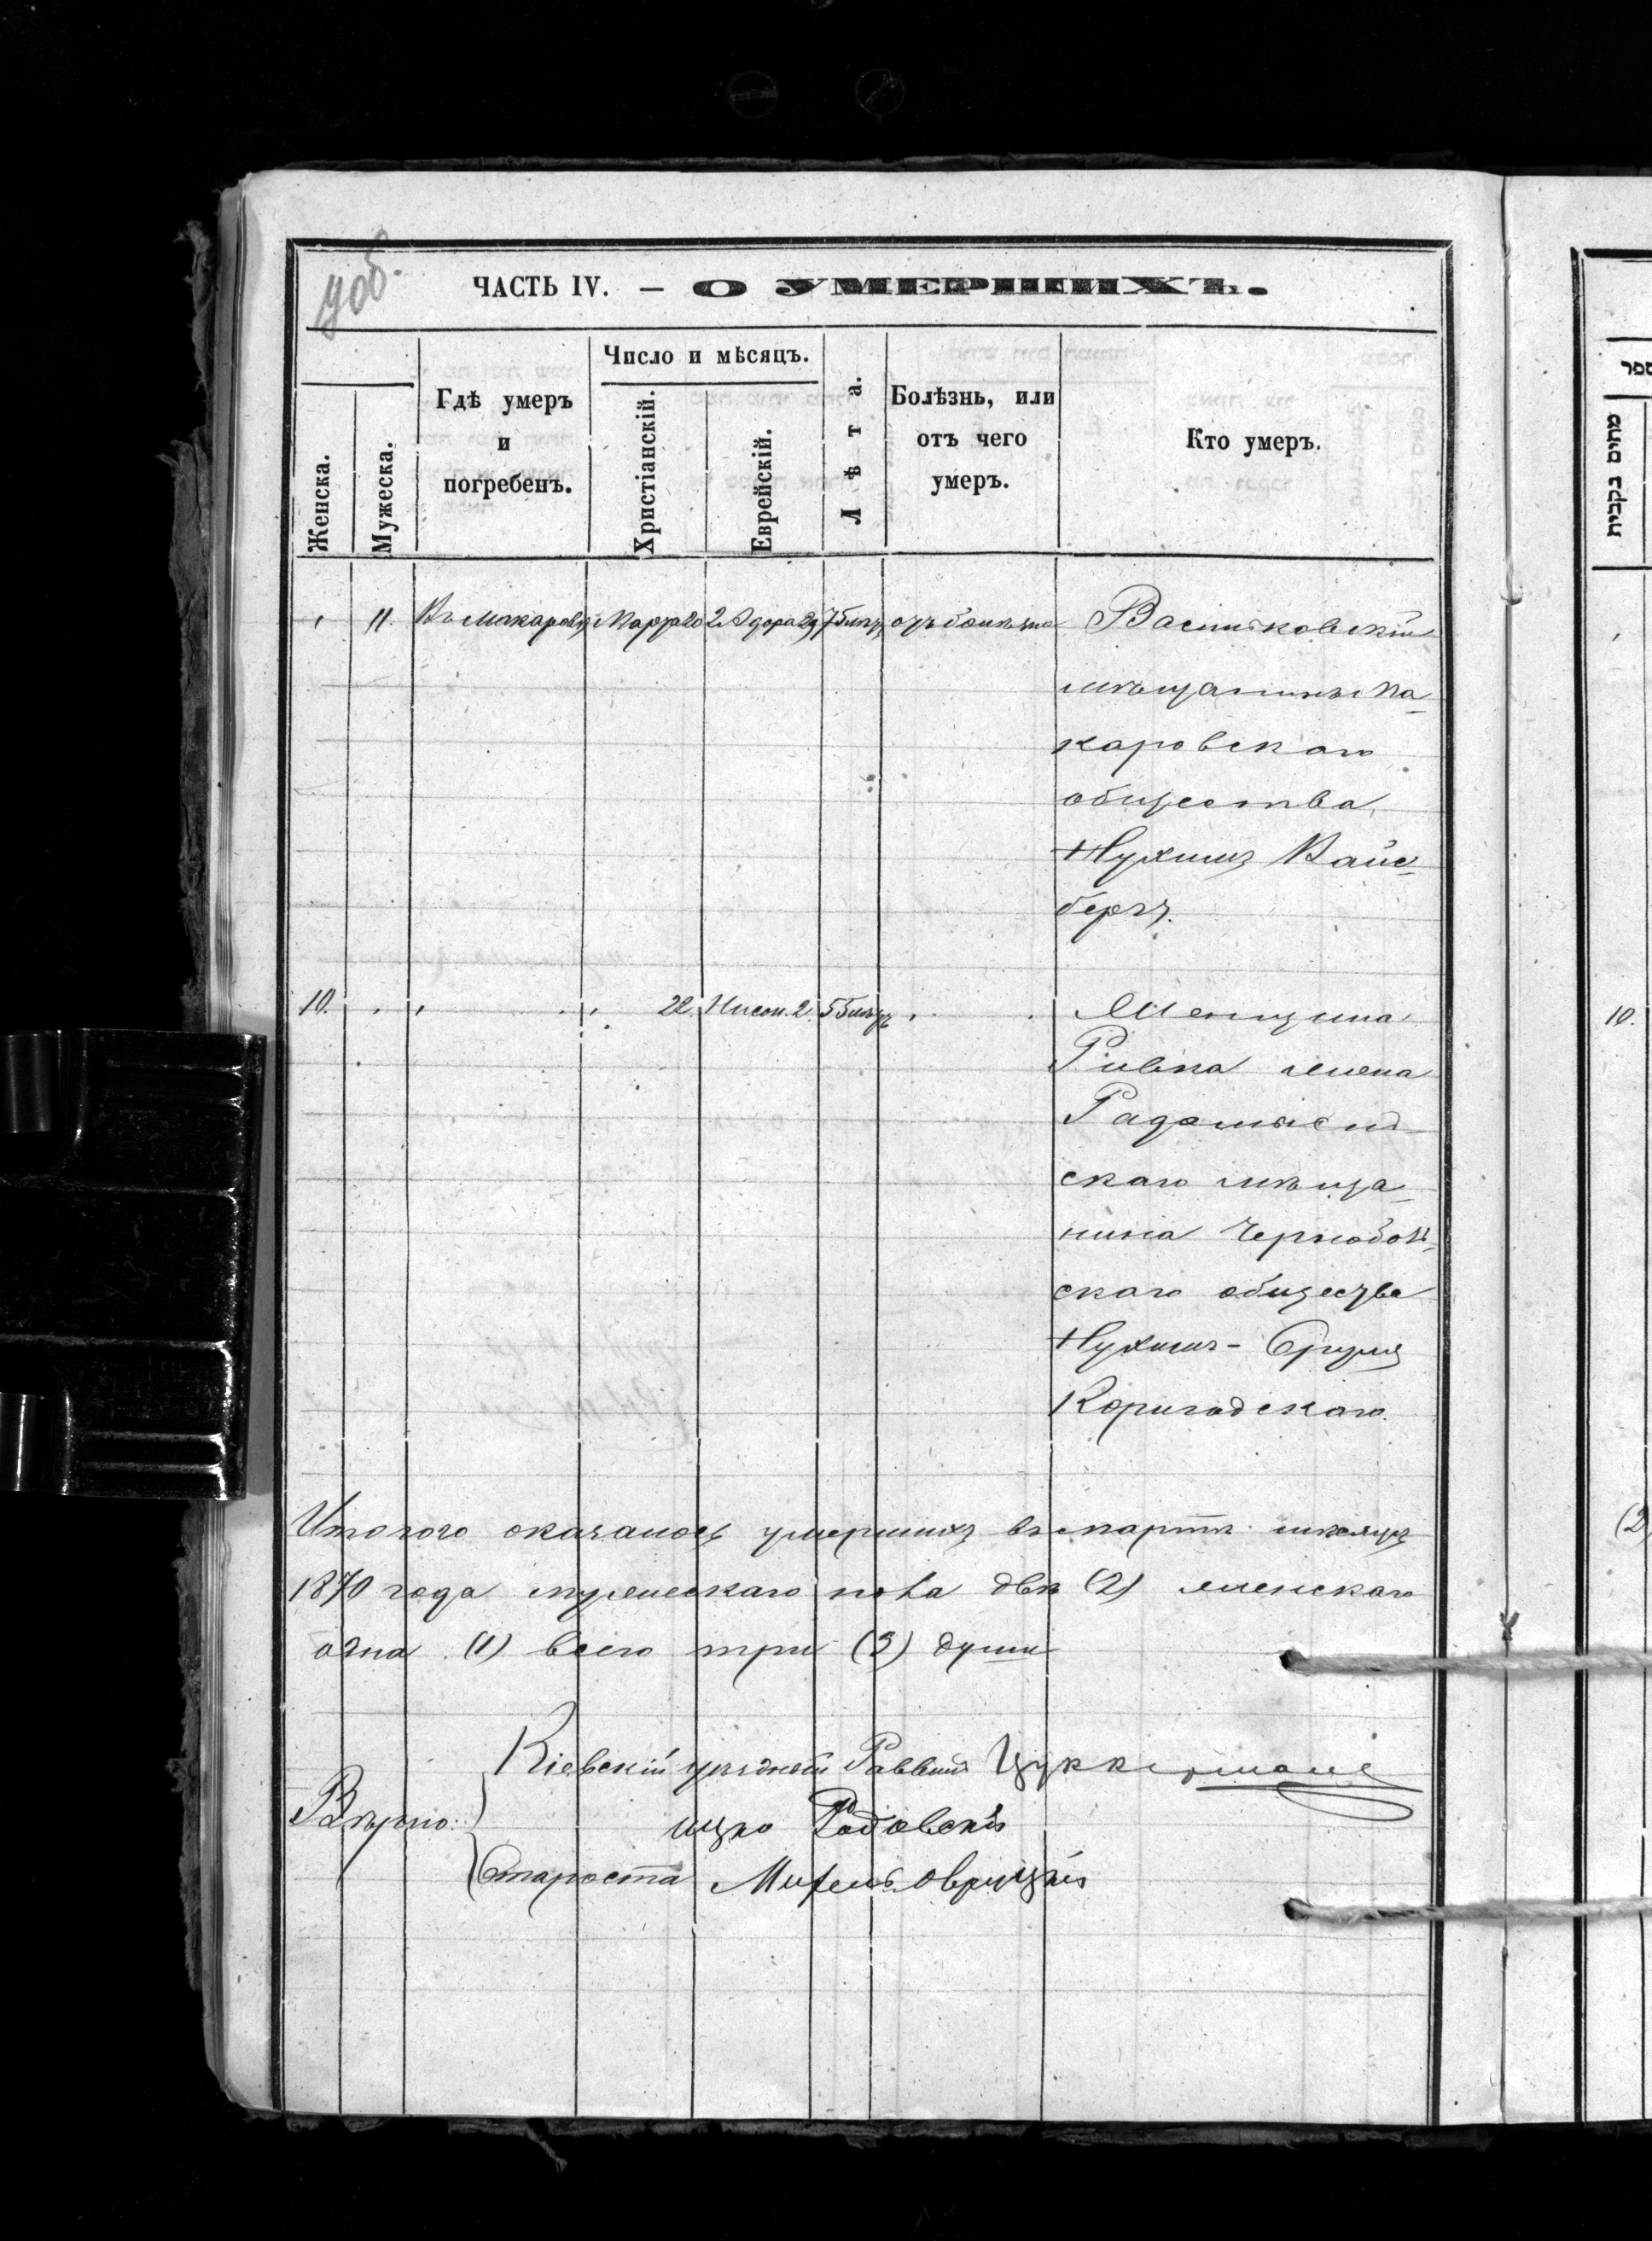 ЧАСТЬ IV. — О УМЕРШИХЪ.
Женска.
Мужеска.
Гдѣ умеръ
и
погребенъ.
Число и мѣсяцъ.
Христіанскій.
Еврейскій.
Лѣта.
Болѣзнь, или
отъ чего
умеръ.
Кто умеръ.
11. Въ Макаровѣ Марта 20 2. Адора 29 отъ болѣзни Васильковскій
мѣщанинъ Ма-
каровскаго
общества,
Нухимъ Вайс-
бергъ.
10. 22. Нисон. 2. Женщина
Ривка жена
Радомысль-
скаго мѣща-
нина Чернобыль-
скаго общества
Нухимъ-Сруля
Коригодскаго.
Итого оказалось умершихъ въ мартѣ мѣсяцѣ
1870 года мужескаго пола двѣ (2) женскаго
одна (1) всего три (3) души
Кіевскій уѣздный Раввинъ Цуккерманъ
Вѣрно:
ицко Радовскій
Староста
סְפר
מתים נקבות
10.
(2)